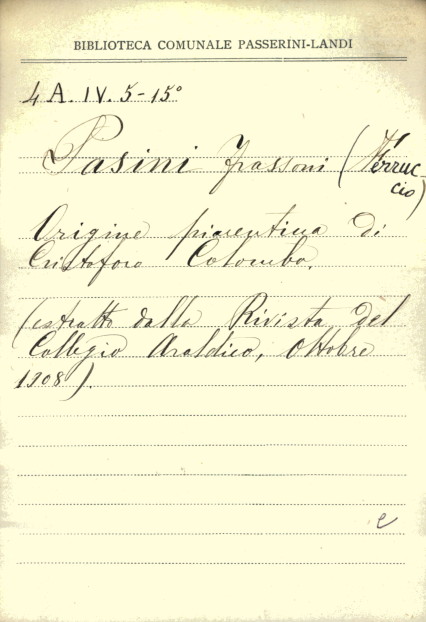 BIBLIOTECA COMUNALE PASSERINI-LANDI
4 A. IV. 5-15°
Pasini Frassoni (Ferruc-
cio)
Origine piacentina di
Cristoforo Colombo.
(estratto dalla Rivista del
Collegio Araldico, Ottobre
1908).
e